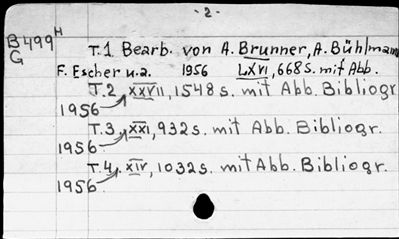 - 2 -
B 499 H
G
T.1 Bearb. von A. Brunner, A. Bühlmann
F. Escher u.a. 1956 LXVI, 668 S. mit Abb.
T.2, XXVII, 1548 S. mit Abb. Bibliogr
1956
T.3, XXI, 932 S. mit Abb. Bibliogr.
1956
T.4, XIV, 1032 S. mit Abb. Bibliogr.
1956